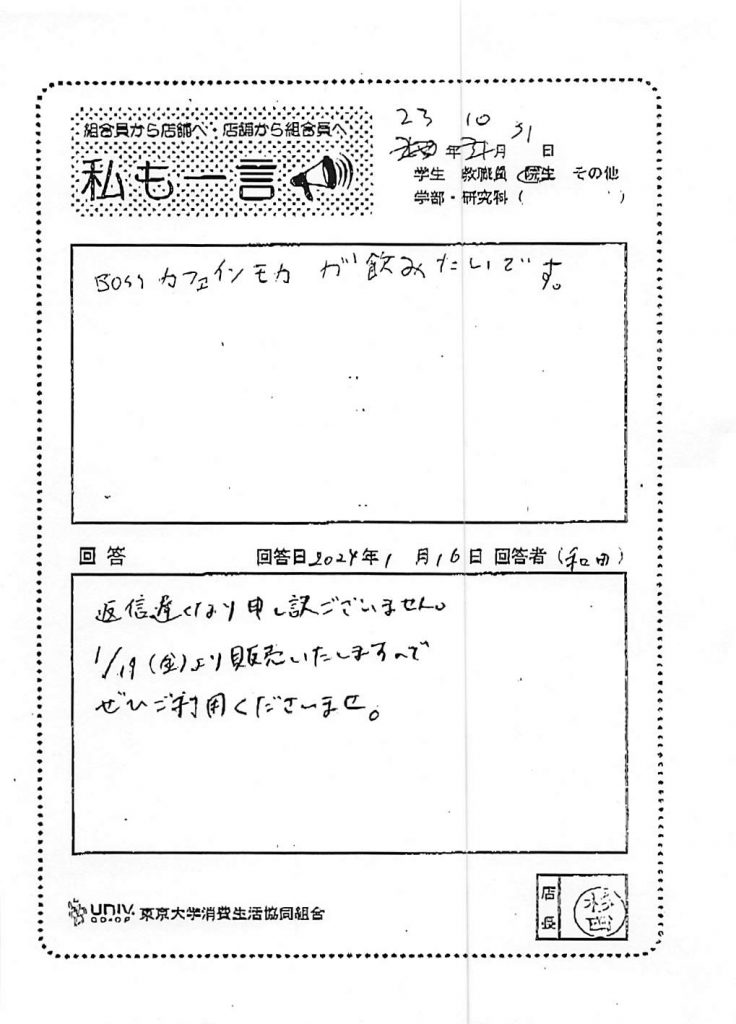 組合員から店舗へ・店舗から組合員へ
私も一言
23 10 31
年 月 日
学生 教職員 院生 その他
学部・研究科( )
BOSS カフェインモカ が飲みたいです。
回答 回答日2024年1月16日 回答者(和田)
返信遅くなり申し訳ございません。
1/19(金)より販売いたしますので
ぜひご利用くださいませ。
UNIV. CO-OP 東京大学消費生活協同組合
店長